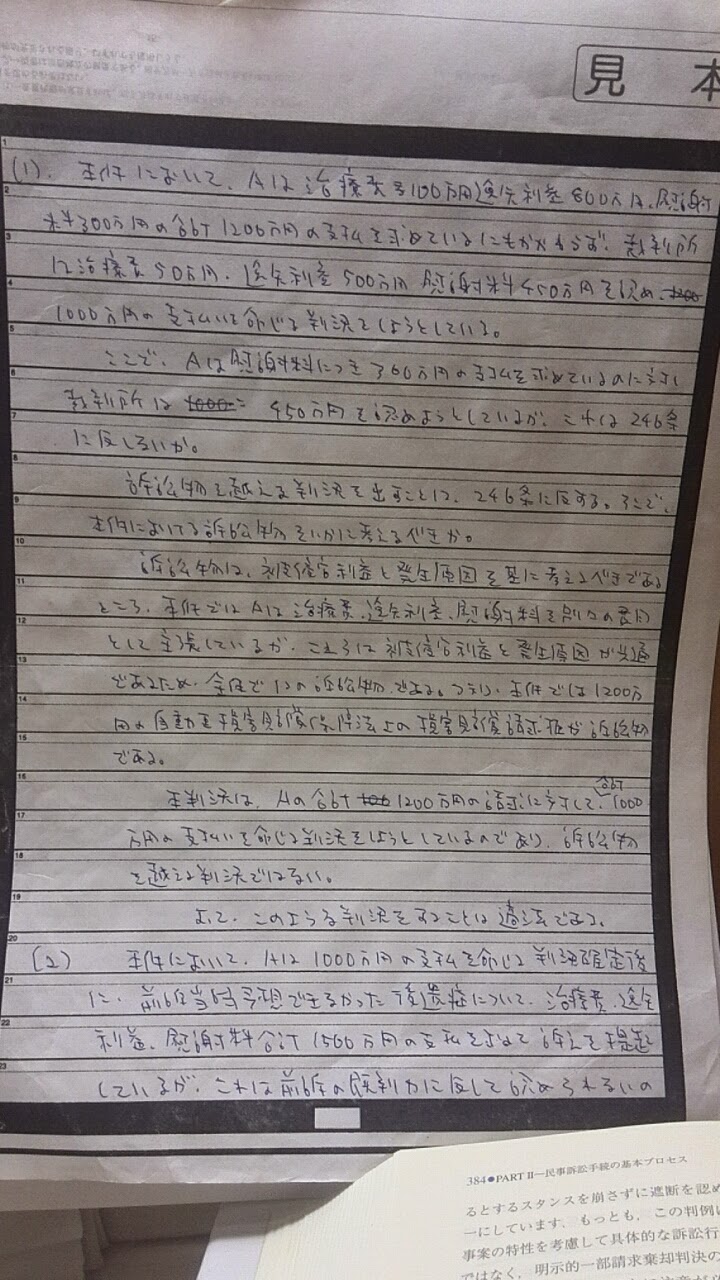 見本
(1). 本件において、Aは治療費100万円逸失利益800万円、慰謝
料300万円の合計1200万円の支払を求めているにもかかわらず、裁判所
は治療費50万円、逸失利益500万円慰謝料450万円を認め、
1000万円の支払いを命じる判決をしようとしている。
ここで、Aは慰謝料につき300万円の支払を求めているのに対し
裁判所は 450万円を認めようとしているが、これは246条
に反しないか。
訴訟物を越える判決を出すことは、246条に反する。そこで、
本件において訴訟物をいかに考えるべきか。
訴訟物は、被侵害利益と発生原因を基に考えるべきである
ところ、本件ではAは治療費、逸失利益、慰謝料を別々の費目
として主張しているが、これらは被侵害利益と発生原因が共通
であるため、全体で1つの訴訟物である。つまり、本件では1200万
円の自動車損害賠償保障法上の損害賠償請求権が訴訟物
である。
本判決は、Aの合計1200万円の請求に対して、合計1000
万円の支払いを命じる判決をしようとしているのであり、訴訟物
を越える判決ではない。
よって、このような判決をすることは適法である。
(2) 本件において、Aは1000万円の支払を命じる判決確定後
に、前訴当時予想できなかった後遺症について、治療費、逸失
利益、慰謝料合計1500万円の支払を求めて訴えを提起
しているが、これは前訴の既判力に反して認められないの
384●PART II—民事訴訟手続の基本プロセス
るとするスタンスを崩さずに遮断を認め
ーにしています。もっとも、この判例は
事案の特性を考慮して具体的な訴訟行
ではなく、明示的一部請求棄却判決の